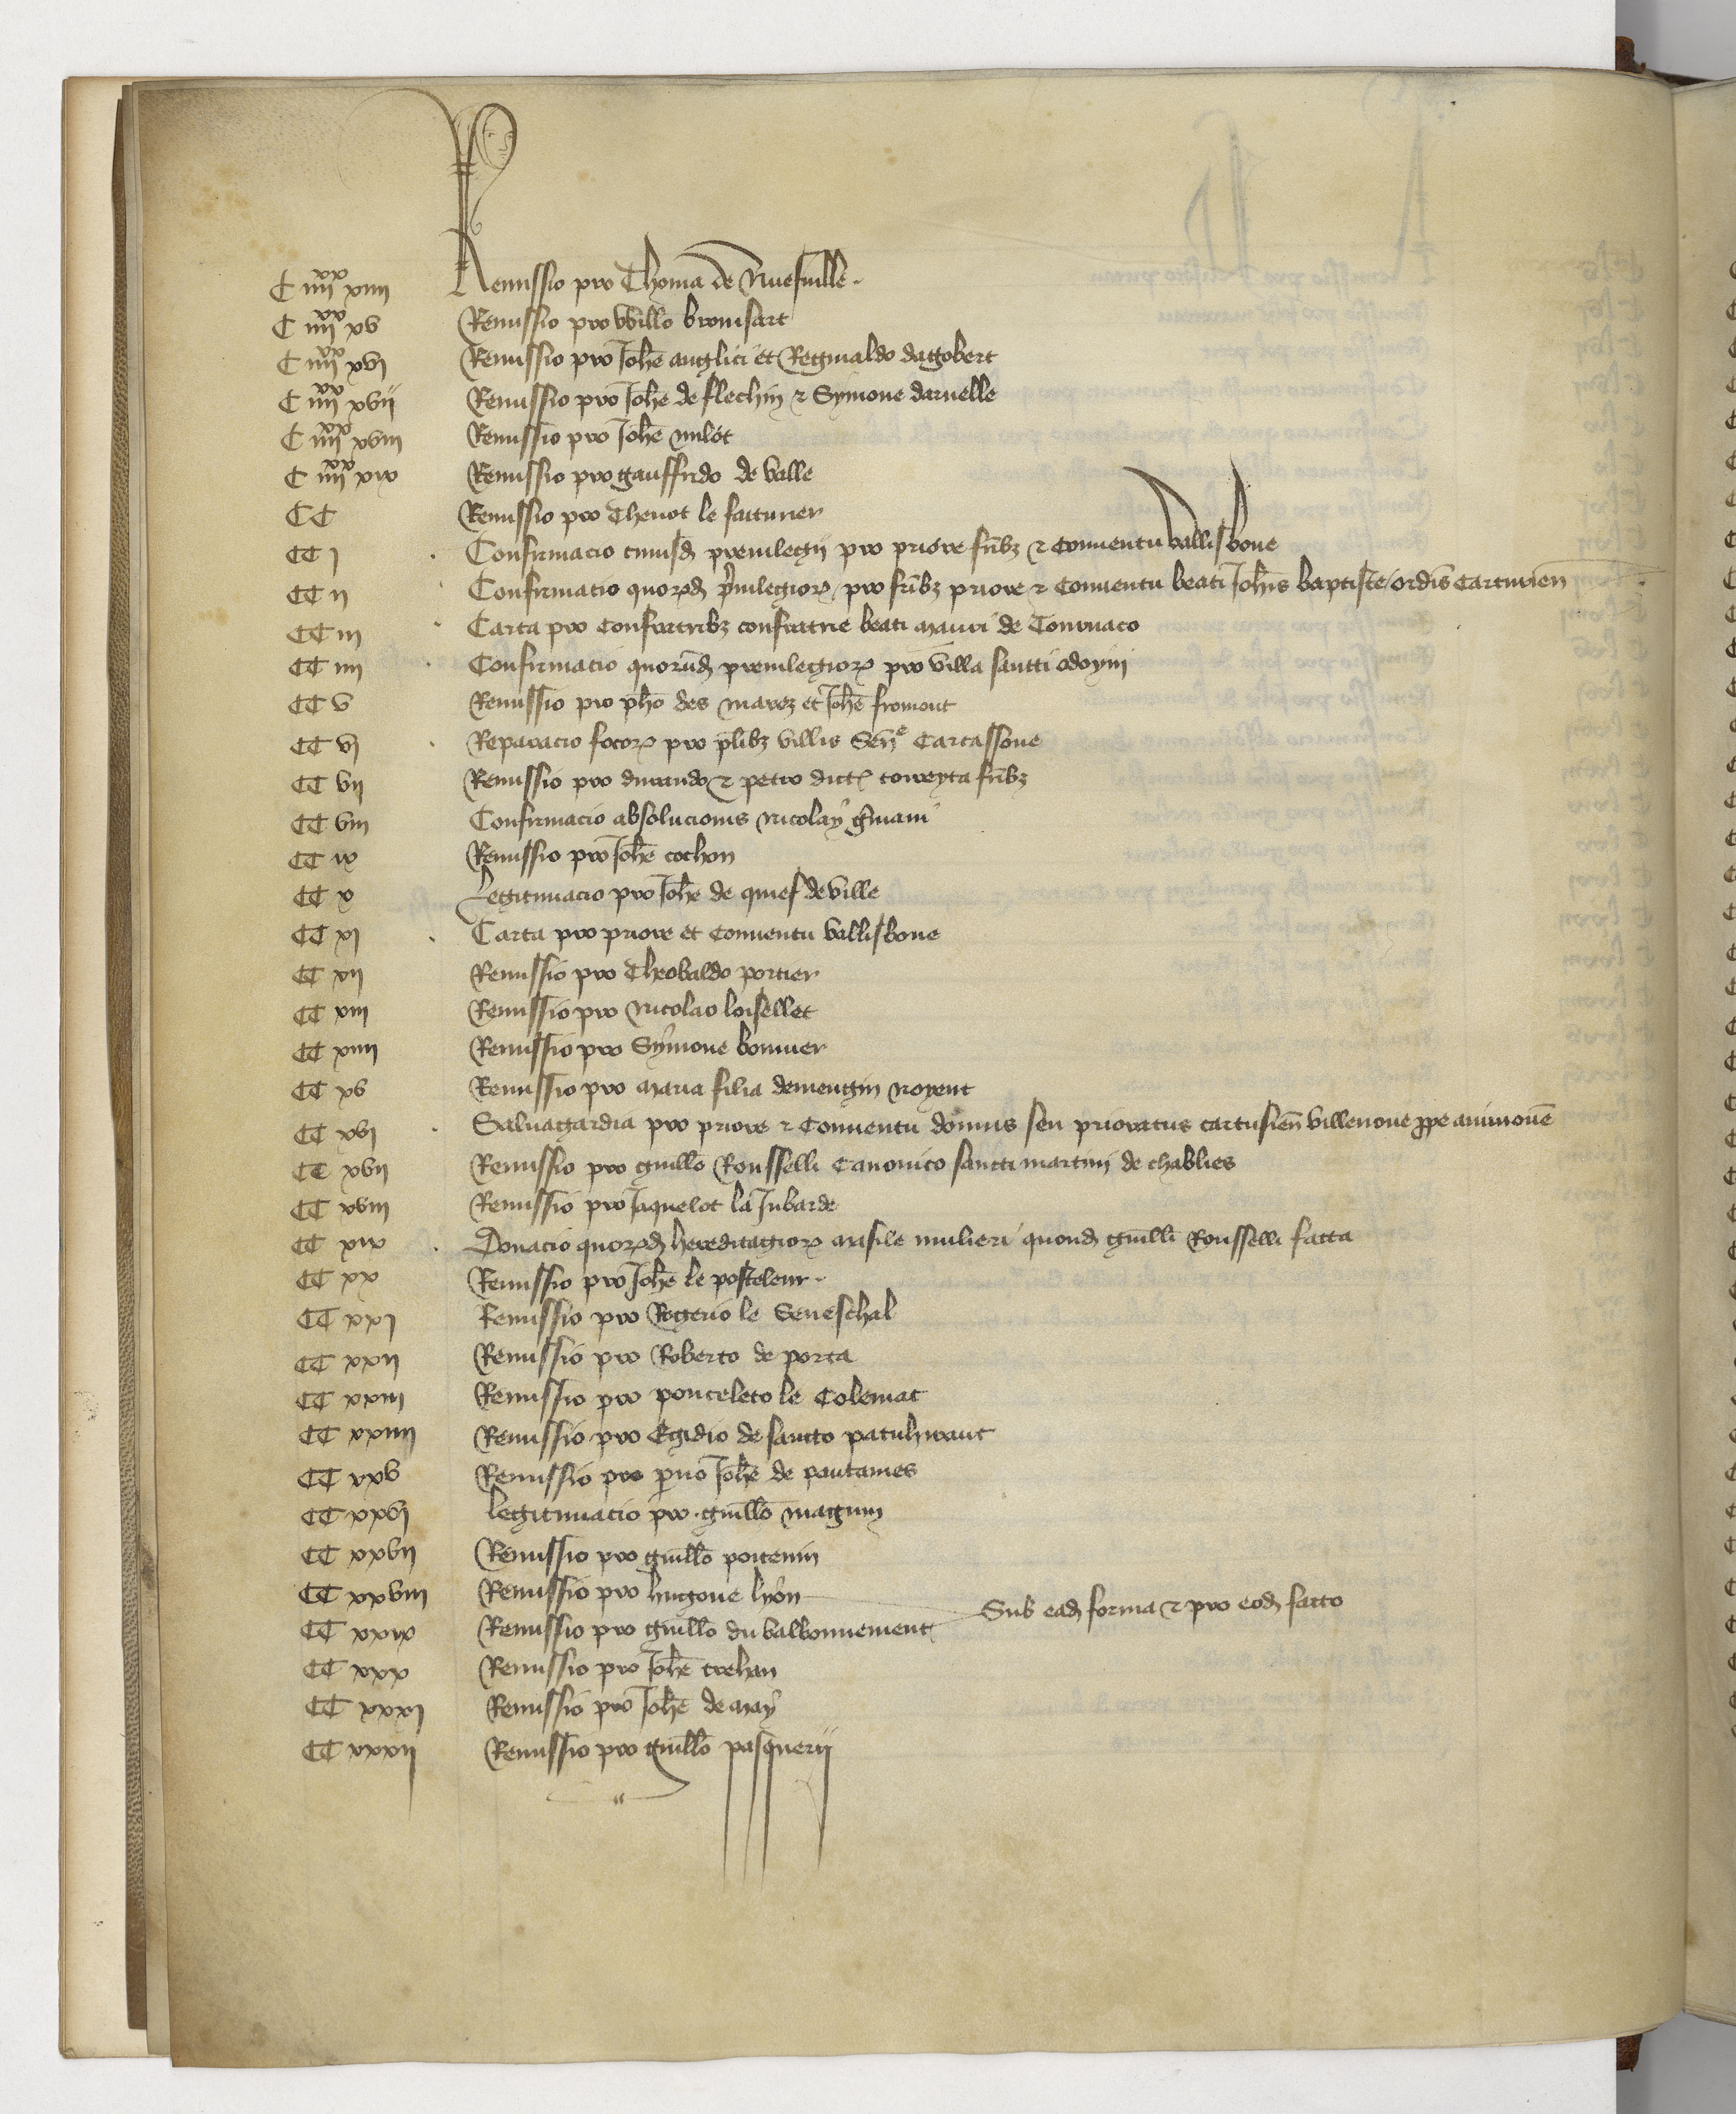 C iiii^xx xiiii Remissio pro Thoma de Nuefuille.
C iiii^xx xv Remissio pro Willo bronsart
C iiii^xx xvj Remissio pro Johē anglici et Reginaldo dagobert
C iiii^xx xvij Remissio pro Johē de flechin ⁊ Symone daruelle
C iiii^xx xviij Remissio pro Johē milot
C iiii^xx xix Remissio pro gauffrido de valle
CC Remissio pro Thenot le facturier
CC j Confirmacio cuiusd preuilegii pro priore frībꝫ ⁊ Conuentu vallisbone
CC ij Confirmatio quorꝫd preuilegiorꝫ pro frībꝫ priore ⁊ Conuentu beati Johīs baptiste ordīs Carturien̄
CC iij Carta pro Confratribꝫ confratrie beati mauri de Tornaco
CC iiij Confirmacio quorūd preuilegiorꝫ pro villa sancti odoyni
CC v Remissio pro phō des marez et Johē fromont
CC vj Reparacio focorꝫ pro plībꝫ villis Sen̄^e Carcassone
CC vij Remissio pro durando ⁊ petro dictꝭ torreyta frībꝫ
CC viij Confirmacio absolucionis Nicolay germani
CC ix Remissio pro Johē cochon
CC x Legitimacio pro Johē de quief deville
CC xj Carta pro priore et Conuentu vallisbone
CC xij Remissio pro Theobaldo portier
CC xiij Remissio pro Nicolao loisellet
CC xiiij Remissio pro Symone bonnier
CC xv Remissio pro maria filia demengin noyent
CC xvj Saluagardia pro priore ⁊ Conuentu domus seu prioratus cartusien̄ villenoue ꝓpe auinionē
CC xvij Remissio pro guillō Rousselli Canonico sancti martini de chablies
CC xviij Remissio pro Jaquelot la Jubarde
CC xix Donacio quorꝫd hereditagiorꝫ masile mulieri quond guillī Rousselli facta
CC xx Remissio pro Johē le posteleur.
CC xxj Remissio pro Rogerio le Seneschal
CC xxij Remissio pro Roberto de porta
CC xxiij Remissio pro ponceleto le Colemat
CC xxiiij Remissio pro Egidio de sancto patuhwaut
CC xxv Remissio pro puo Johē de pantames
CC xxvj Legitimacio pro guillō magnin
CC xxvij Remissio pro guillō poitenin
CC xxviij Remissio pro hugone lyon
Sub ead forma ⁊ pro eod facto
CC xxix Remissio pro guillō du valbonnement
CC xxx Remissio pro Johē trehan
CC xxxj Remissio pro Johē de may
CC xxxij Remissio pro guillō pasquerii